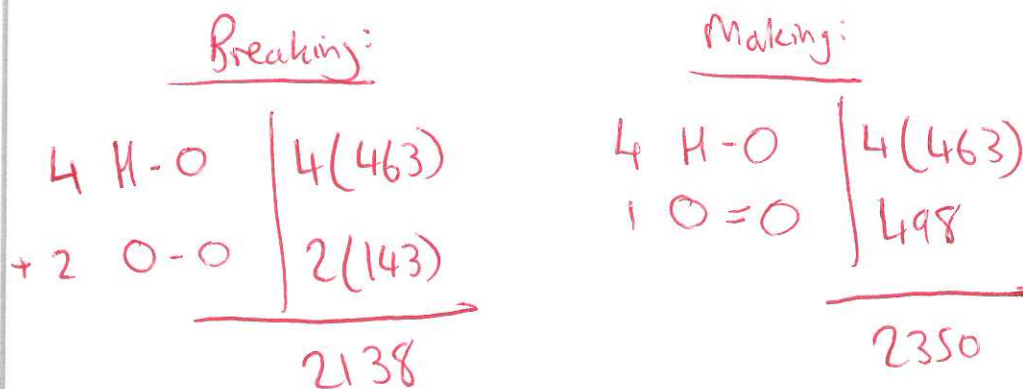 Breaking:
4 H-O 4(463)
+ 2 O-O 2(143)
2138
Making:
4 H-O 4(463)
1 O=O 498
2350